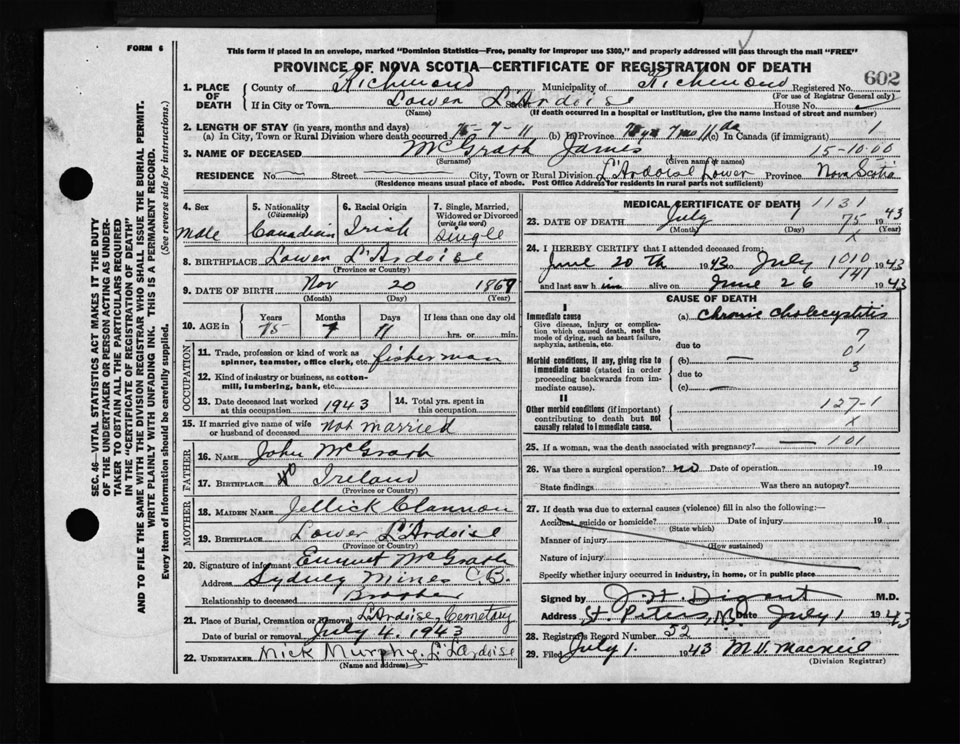 FORM 6
This form if placed in an envelope, marked "Dominion Statistics—Free, penalty for improper use $300," and properly addressed will pass through the mail "FREE"
PROVINCE OF NOVA SCOTIA—CERTIFICATE OF REGISTRATION OF DEATH
602
1. PLACE OF DEATH County of Richmond Municipality of Richmond Registered No.
(For use of Registrar General only)
If in City or Town Lower L'Ardoise Street House No.
(Name) (If death occurred in a hospital or institution, give the name instead of street and number)
2. LENGTH OF STAY (in years, months and days)
(a) In City, Town or Rural Division where death occurred 75-7-11 (b) In Province 75 yrs 7 mo 11 da (c) In Canada (if immigrant) 1
3. NAME OF DECEASED McGrath James 15-10.00
(Surname) (Given name or names)
RESIDENCE No. Street City, Town or Rural Division L'Ardoise Lower Province Nova Scotia
(Residence means usual place of abode. Post Office Address for residents in rural parts not sufficient)
4. Sex male
5. Nationality (Citizenship) Canadian
6. Racial Origin Irish
7. Single, Married, Widowed or Divorced (write the word) Single
8. BIRTHPLACE Lower L'Ardoise
(Province or Country)
9. DATE OF BIRTH Nov 20 1867
(Month) (Day) (Year)
10. AGE in Years Months Days If less than one day old
75 7 11 hrs. or min.
OCCUPATION
11. Trade, profession or kind of work as spinner, teamster, office clerk, etc. fisherman
12. Kind of industry or business, as cotton-mill, lumbering, bank, etc.
13. Date deceased last worked at this occupation 1943
14. Total yrs. spent in this occupation
15. If married give name of wife or husband of deceased Not married
FATHER
16. NAME John McGrath
17. BIRTHPLACE Ireland
(Province or Country)
MOTHER
18. MAIDEN NAME Jellick Clannon
19. BIRTHPLACE Lower L'Ardoise
(Province or Country)
20. Signature of informant Emmet McGrath
Address Sydney Mines C.B.
Relationship to deceased Brother
21. Place of Burial, Cremation or Removal L'Ardoise Cemetary
Date of burial or removal July 4. 1943
22. UNDERTAKER Mick Murphy. L'Ardoise
(Name and address)
MEDICAL CERTIFICATE OF DEATH 1131
23. DATE OF DEATH July 1 75 1943
(Month) (Day) x (Year)
24. I HEREBY CERTIFY that I attended deceased from:
June 20 th 1943 to July 1010 1943
and last saw him alive on June 26 141 1943
CAUSE OF DEATH
I
Immediate cause
Give disease, injury or complication which caused death, not the mode of dying, such as heart failure, asphyxia, asthenia, etc.
(a) Chronic Cholecystitis
7
due to
01
Morbid conditions, if any, giving rise to immediate cause (stated in order proceeding backwards from immediate cause).
(b) —
3
due to
(c) —
II
Other morbid conditions (if important) contributing to death but not causally related to immediate cause.
127-1
x
25. If a woman, was the death associated with pregnancy? — 101
26. Was there a surgical operation? no Date of operation 19
State findings Was there an autopsy?
27. If death was due to external causes (violence) fill in also the following:—
Accident, suicide or homicide? Date of injury 19
(State which)
Manner of injury
(How sustained)
Nature of injury
Specify whether injury occurred in industry, in home, or in public place
Signed by M.D.
Address St. Peters, N.S. Date July 1 1943
28. Registrar's Record Number 52
29. Filed July 1. 1943 M.V. MacNeil
(Division Registrar)
SEC. 46—VITAL STATISTICS ACT MAKES IT THE DUTY
OF THE UNDERTAKER OR PERSON ACTING AS UNDER-
TAKER TO OBTAIN ALL THE PARTICULARS REQUIRED
IN THE "CERTIFICATE OF REGISTRATION OF DEATH"
AND TO FILE THE SAME WITH THE DIVISION REGISTRAR WHO SHALL ISSUE THE BURIAL PERMIT.
WRITE PLAINLY WITH UNFADING INK. THIS IS A PERMANENT RECORD.
Every item of information should be carefully supplied. (See reverse side for instructions.)